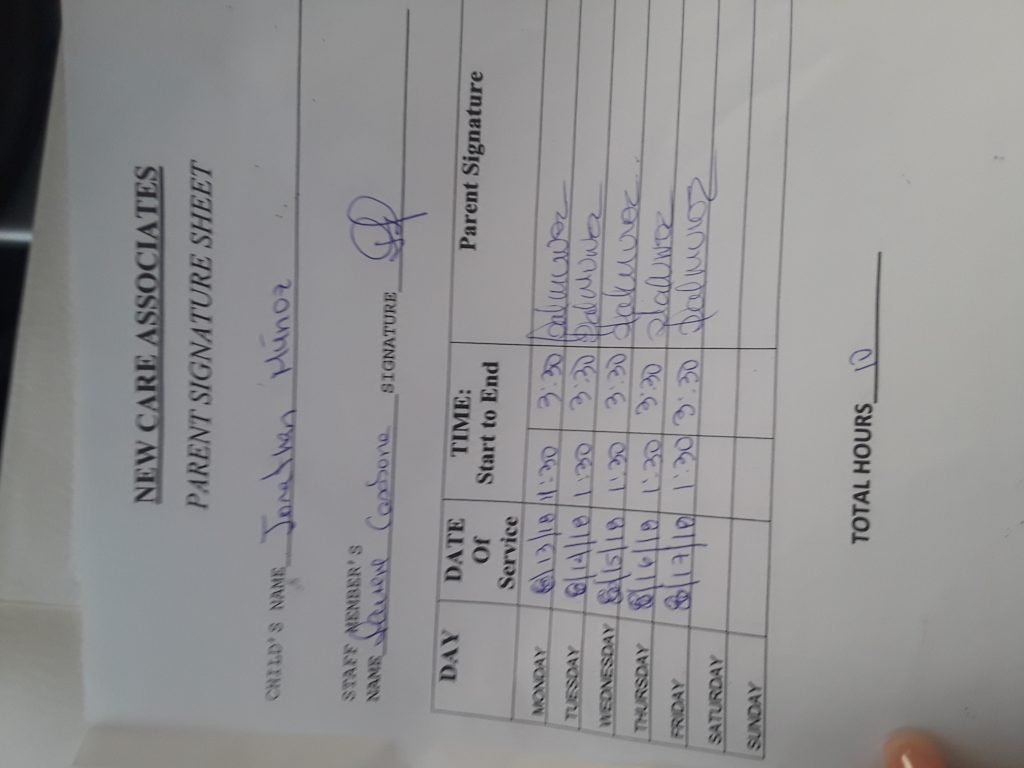 NEW CARE ASSOCIATES
PARENT SIGNATURE SHEET
CHILD'S NAME Jonathan Muñoz
STAFF MEMBER'S
NAME Cardona SIGNATURE
DAY DATE Of Service TIME: Start to End Parent Signature
MONDAY 8/13/18 1:30 3:30
TUESDAY 8/14/18 1:30 3:30
WEDNESDAY 8/15/18 1:30 3:30
THURSDAY 8/16/18 1:30 3:30
FRIDAY 8/17/18 1:30 3:30
SATURDAY
SUNDAY
TOTAL HOURS 10